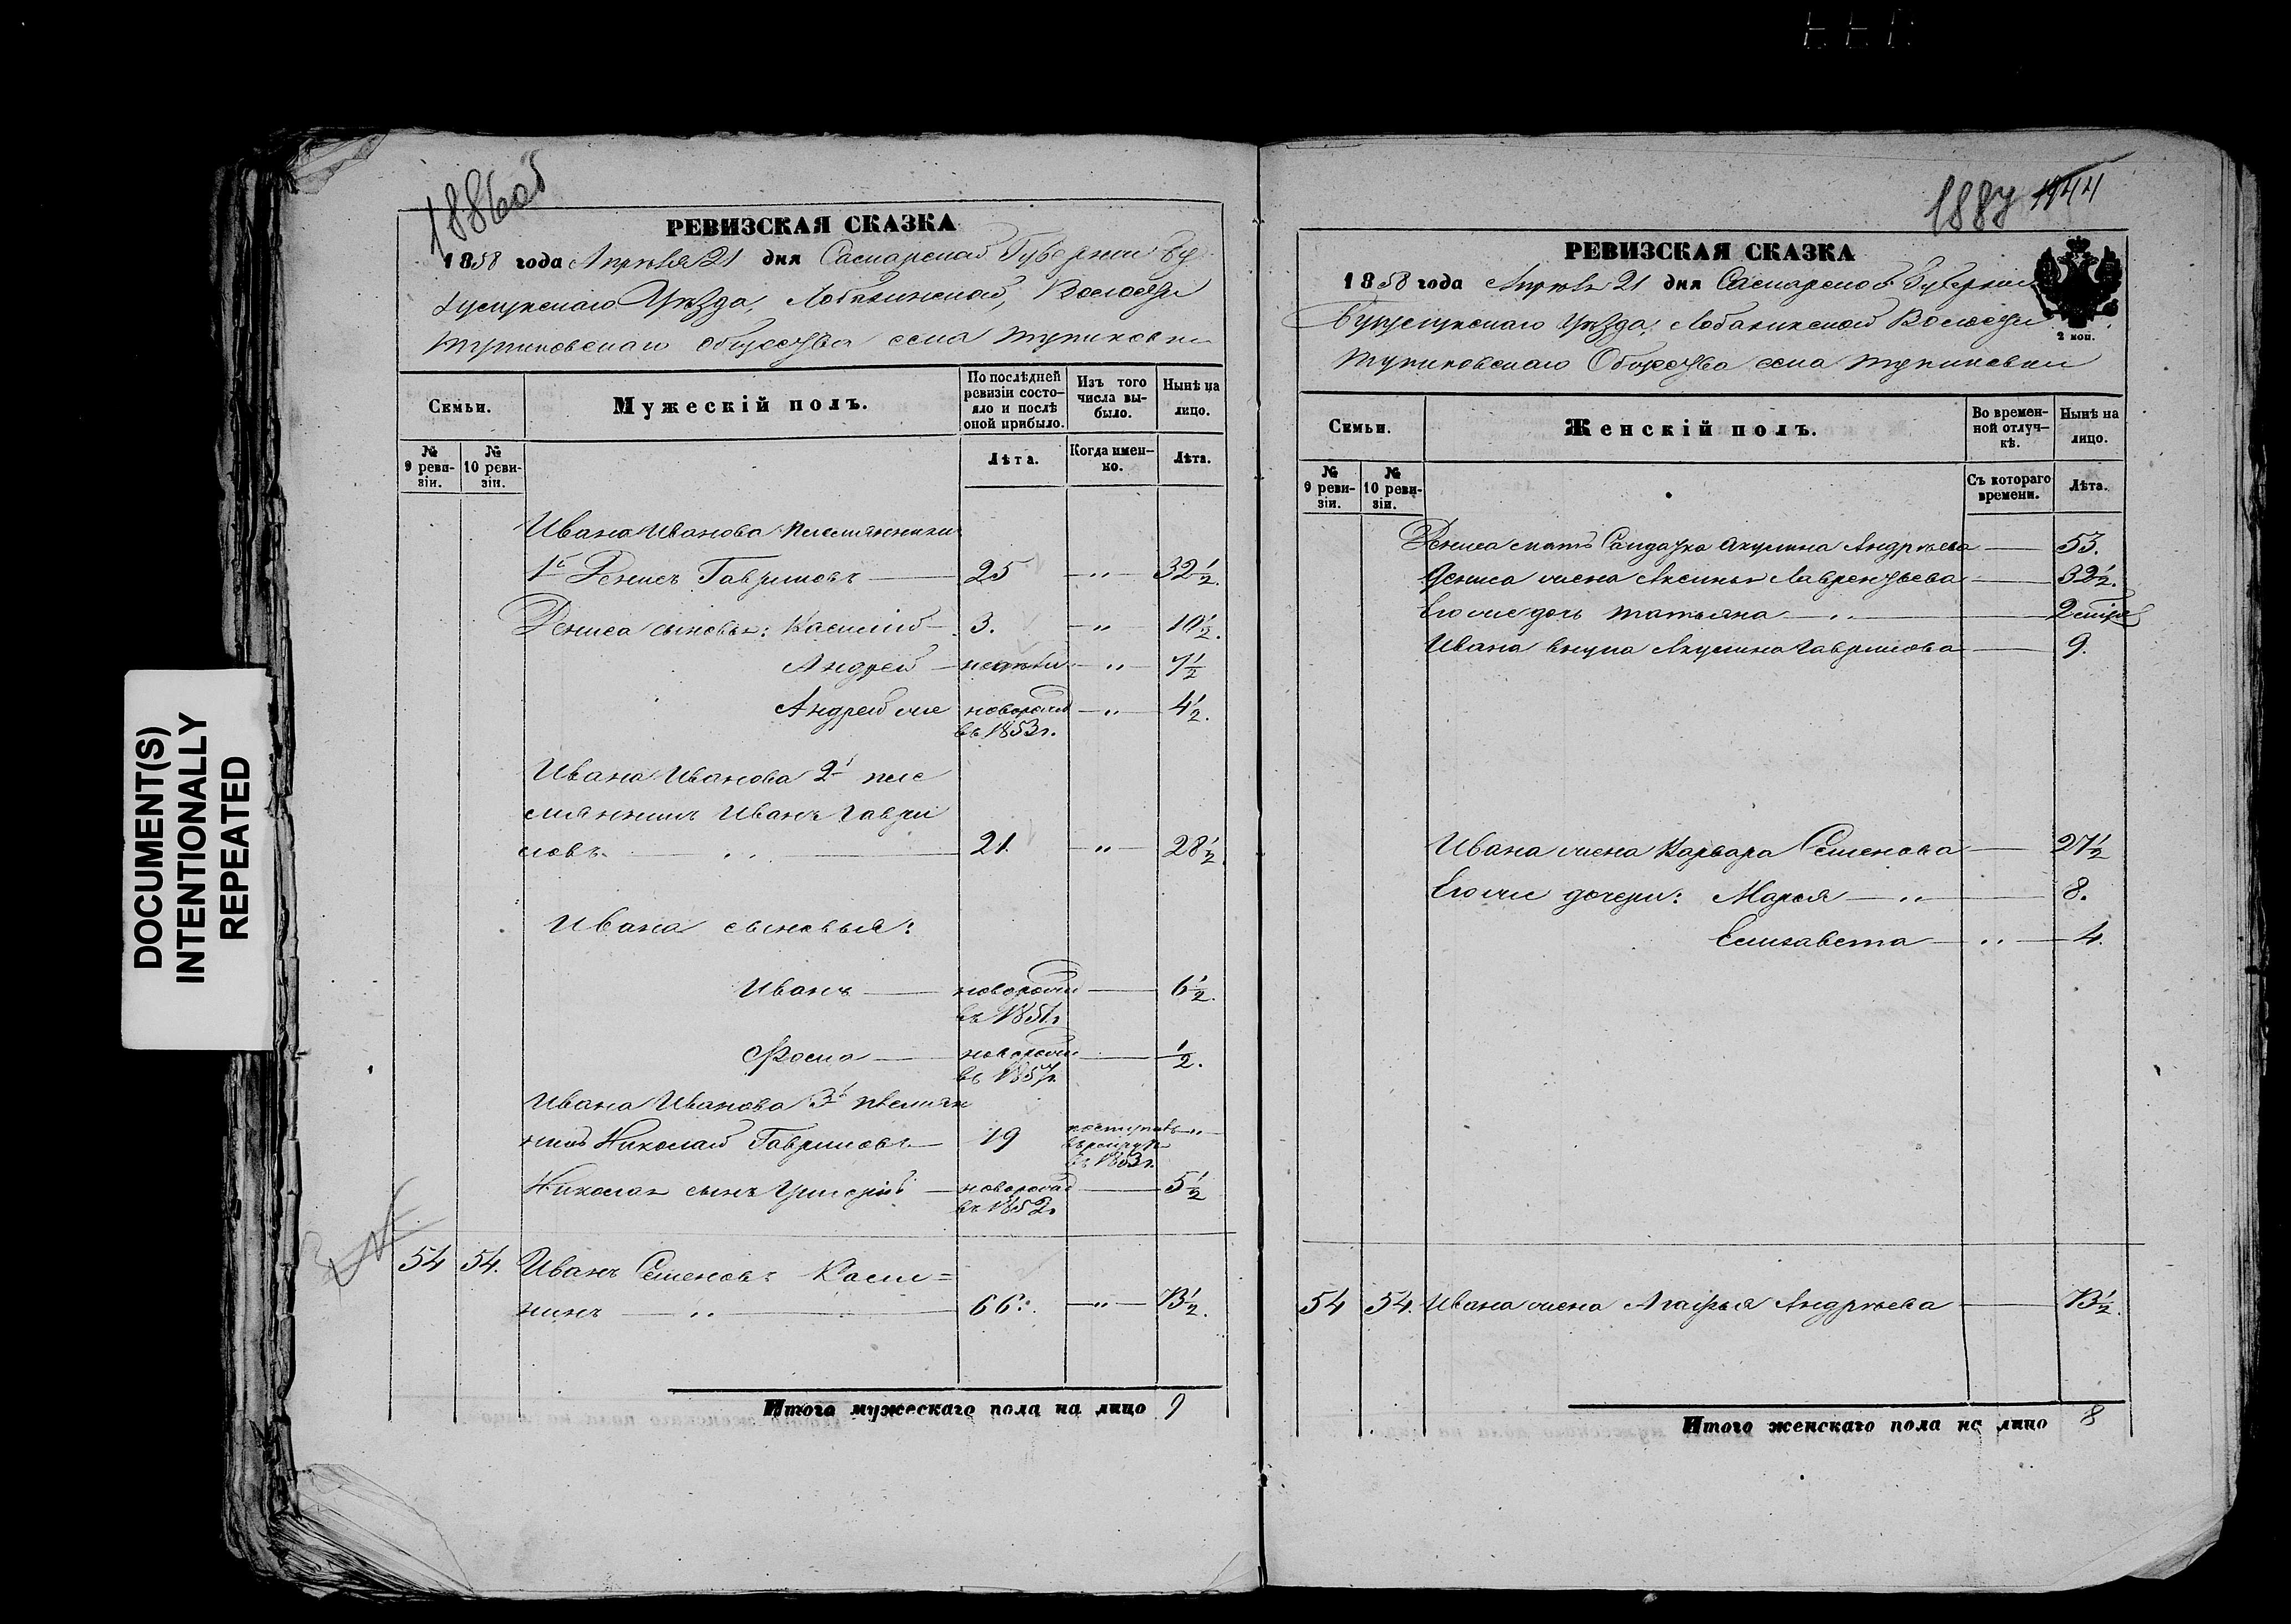 DOCUMENT(S)
INTENTIONALLY
REPEATED
1886об
РЕВИЗСКАЯ СКАЗКА
1858 года Апреля 21 дня Самарской Губернии Бу
гуруслукскаго Уѣзда, Лобазинской, Волости
Тупиковскаго общества села Тупиковки
Семьи.
Мужескій полъ.
По послѣдней ревизіи состояло и послѣ оной прибыло.
Изъ того числа выбыло.
Нынѣ на лицо.
№ 9 ревизіи.
№ 10 ревизіи.
Лѣта.
Когда именно.
Лѣта.
Ивана Иванова племянники
1й Денисъ Гавриловъ 25 " 32½.
Дениса сыновья: Касимiй 3. " 10½.
Андрей " 7½
Андрей же новорожд " 4½.
въ 1853г.
Ивана Иванова 2й пле
мянникъ Иванъ Гаври
ловъ. 21. " 28½.
Ивана сыновья:
Иванъ новорожд 6½.
въ 1851г.
Фома новорожд ½.
въ 1857г.
Ивана Иванова 3й племян
никъ Николай Гавриловъ 19 "
въ рекруты
въ 1853г.
Николая сынъ Григорій новорожд 5½
въ 1852г.
54 54. Иванъ Семеновъ
нинъ 66. " 73½.
Итого мужескаго пола на лицо 9
1887 1144
РЕВИЗСКАЯ СКАЗКА
1858 года Апреля 21 дня Самарской Губернии
Бугурусланскаго Уѣзда, Лобазинской Волости
Тупиковскаго Общества села Тупиковки
2 коп.
Семьи.
Женскій полъ.
Во временной отлучкѣ.
Нынѣ на лицо.
№ 9 ревизіи.
№ 10 ревизіи.
Съ котораго времени.
Лѣта.
Дениса мать Солдатка Акулина Андреева 53.
Дениса жена Аксинья Лаврентьева 32½.
Его же дочь Татьяна "
Ивана внука Акулина Гаврилова 9.
Ивана жена Варвара Семенова 27½
Его же дочери: Марья " 8.
Елизавета " 4.
54 54. Ивана жена Агафья Андреева 73½.
Итого женскаго пола на лицо 8